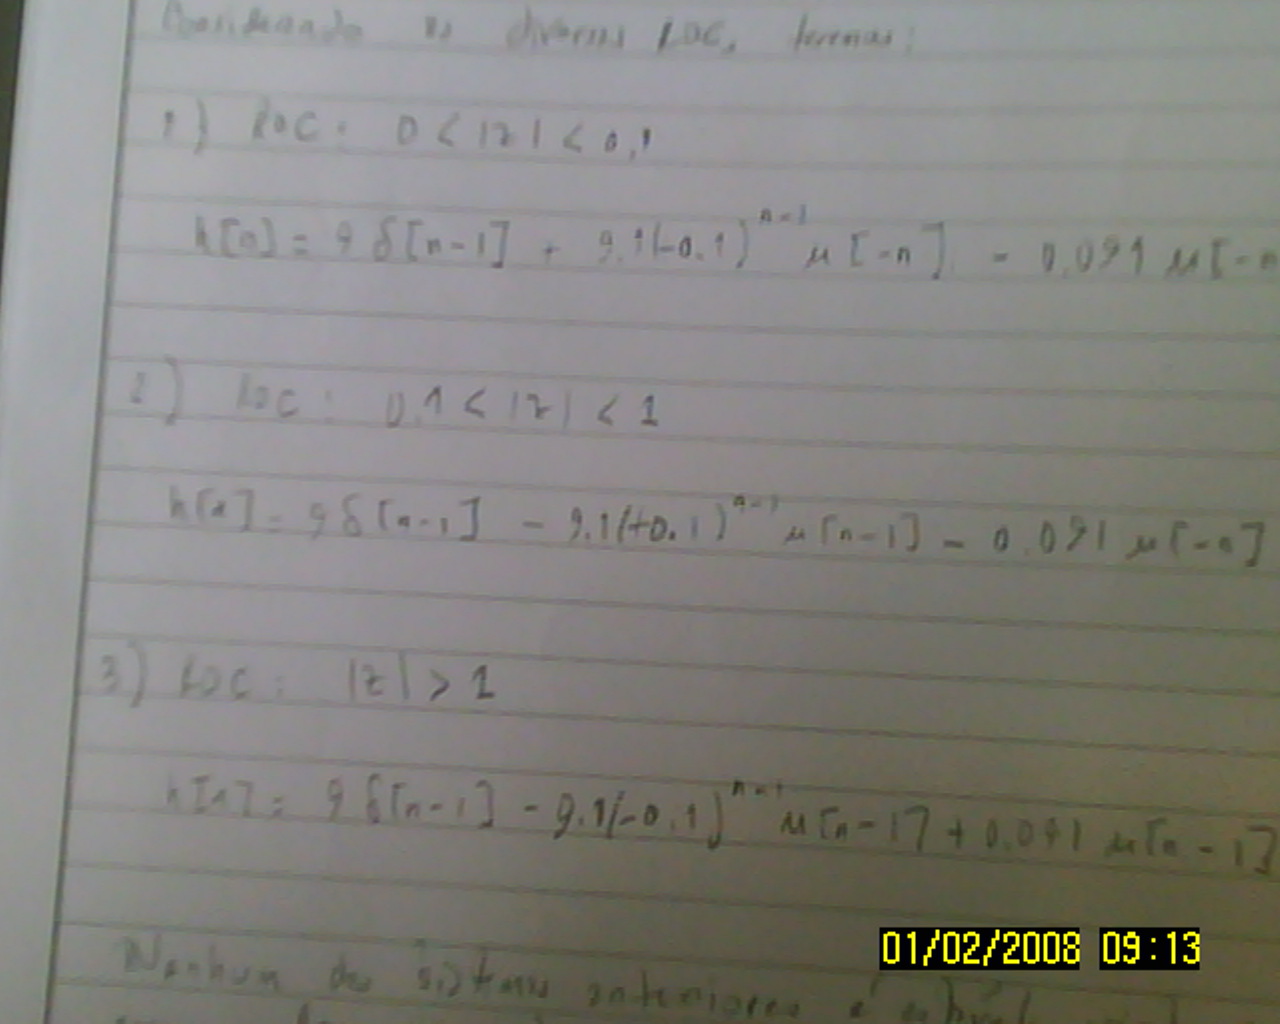 Considerando as diversas ROC, teremos:
1) ROC: 0 < |z| < 0,1
h[n] = 9 δ[n-1] + 9.1(-0.1)^{n-1} μ[-n] - 0.091 μ[-n
2) ROC: 0.1 < |z| < 1
h[n] = 9 δ[n-1] - 9.1(-0.1)^{n-1} μ[n-1] - 0.091 μ[-n]
3) ROC: |z| > 1
h[n] = 9 δ[n-1] - 9.1(-0.1)^{n-1} μ[n-1] + 0.091 μ[n-1]
Nenhum dos sistemas anteriores é estável
01/02/2008 09:13